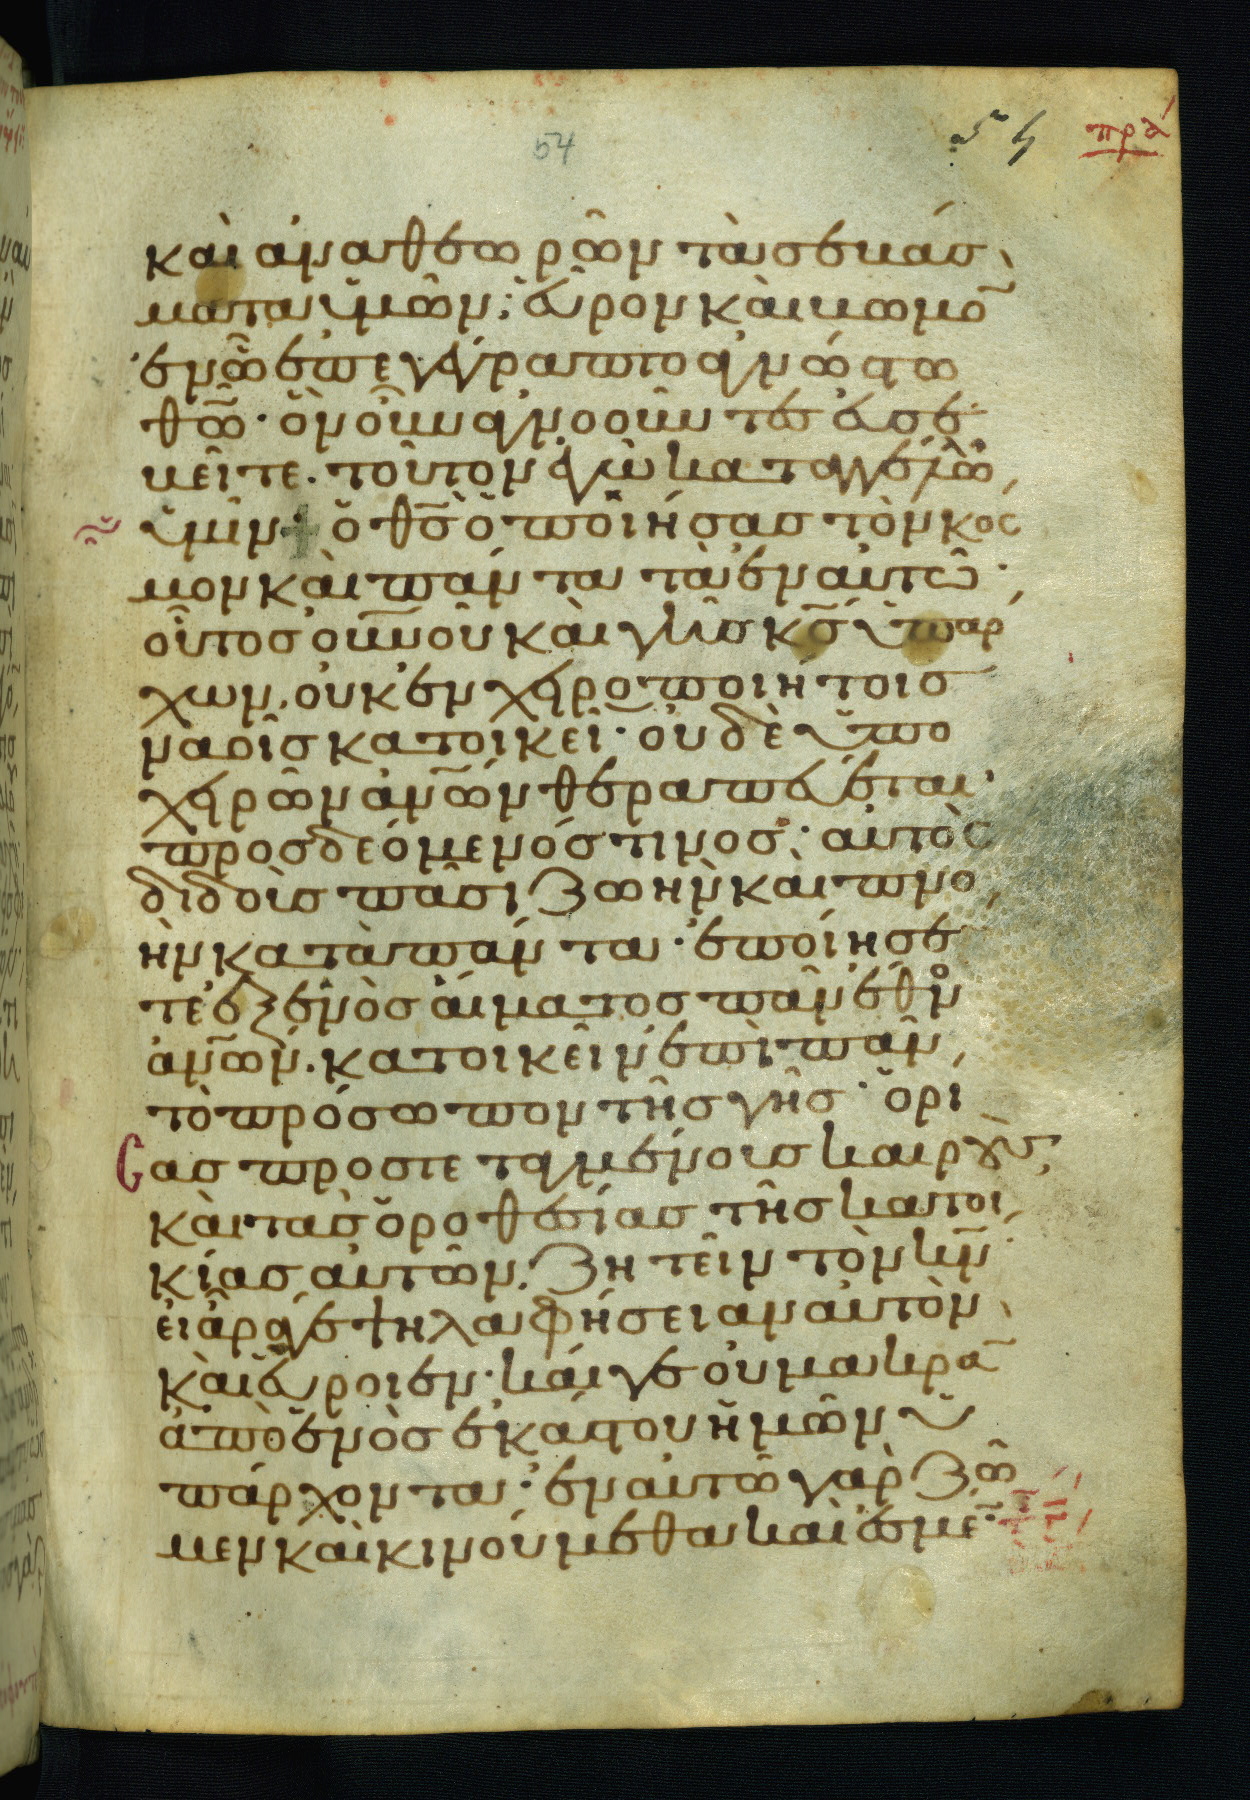 54
54 πρα
καὶ ἀναθεωρῶν τὰ σεβάσ
ματα ὑμῶν· εὗρον καὶ βωμὸ̅
ἐν ᾧ ἐπεγέγραπτο ἀγνώστω
θ̅ω̅· ὃν οὖν ἀγνοοῦντες εὐσε
βεῖτε. τοῦτον ἐγὼ καταγγέλλω
ὑμῖν· ὁ θ̅ς̅ ὁ ποιήσας τὸν κόσ
μον καὶ πάντα τὰ ἐν αὐτῶ·
οὗτος ο̅υ̅ν̅ο̅υ καὶ γῆς κ̅ς̅ ὑπάρ
χων, οὐκ ἐν χειροποιήτοις
ναοῖς κατοικεῖ· οὐδὲ ὑπὸ
χειρῶν ἀν̅ω̅ν θεραπεύεται
προσδεόμενός τινος· αὐτὸς
διδοὺς πᾶσι ζωὴν καὶ πνο
ὴν κατὰ πάντα· ἐποίησέ
τε ἐξ ἑνὸς αἵματος πᾶν ἔθν̊
ἀν̅ω̅ν. κατοικεῖν ἐπὶ πᾶν
τὸ πρόσωπον τῆς γῆς· ὁρί
σας προστεταγμένους καιροὺς
καὶ τὰς ὁροθεσίας τῆς κατοι
κίας αὐτῶν. ζητεῖν τὸν κ̅ν̅
εἰ ἄρα γε ψηλαφήσειαν αὐτὸν
καὶ εὕροιεν· καί γε οὐ μακρὰ̅
ἀπὸ ἑνὸς ἑκάστου ἡμῶν ὑ
πάρχοντα· ἐν αὐτῶ γὰρ ζῶ
μεν καὶ κινούμεθα καὶ ἐσμέ̅·